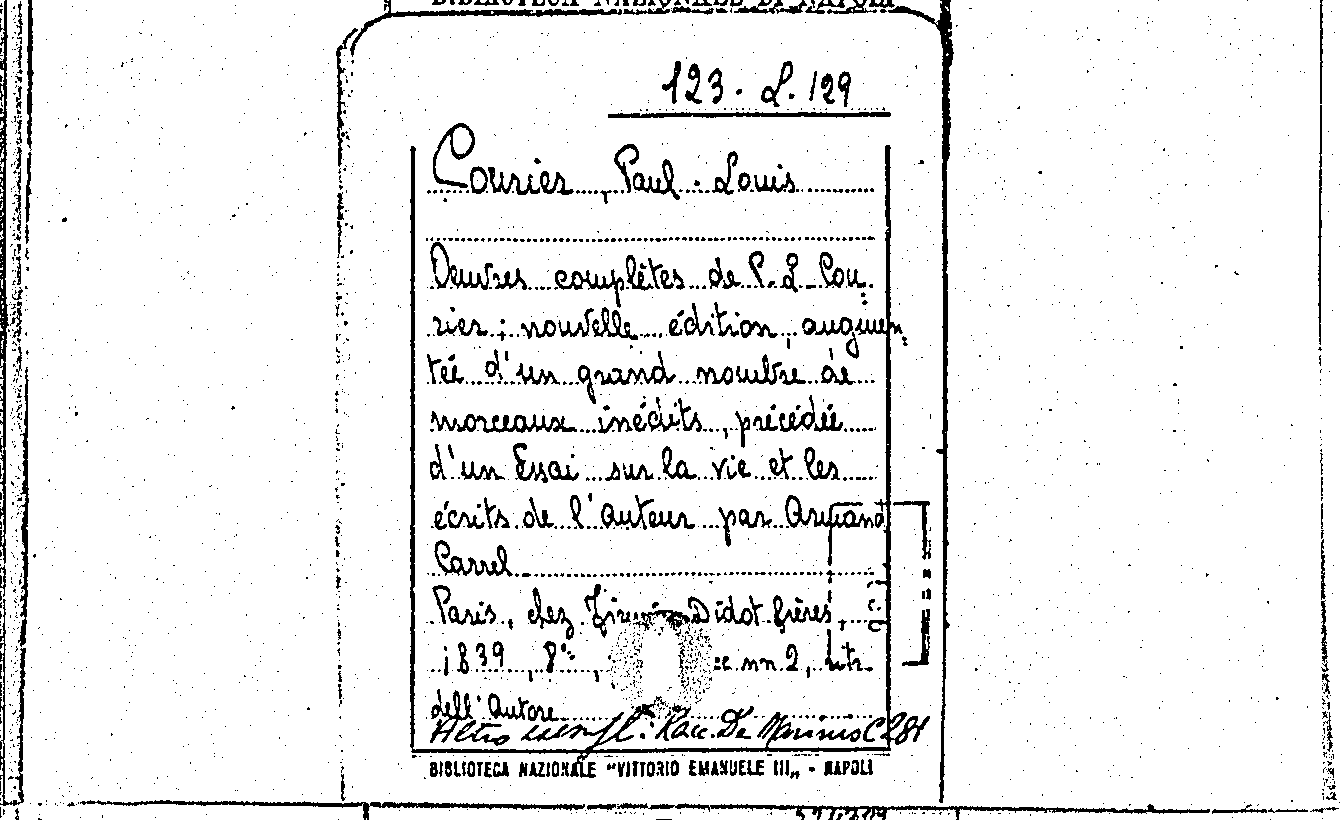 BIBLIOTECA NAZIONALE DI NAPOLI
123. L. 129
Courier, Paul-Louis
Oeuvres complètes de P.L. Cou-
rier; nouvelle édition, augmen-
tée d'un grand nombre de
morceaux inédits, précédée
d'un Essai sur la vie et les
écrits de l'auteur par Armand
Carrel
Paris, chez Firmin Didot frères,
1839, 8°, nn 2, ritr.
dell'Autore
Altro esempl: Racc. De Marinis C 281
BIBLIOTECA NAZIONALE "VITTORIO EMANUELE III„ - NAPOLI